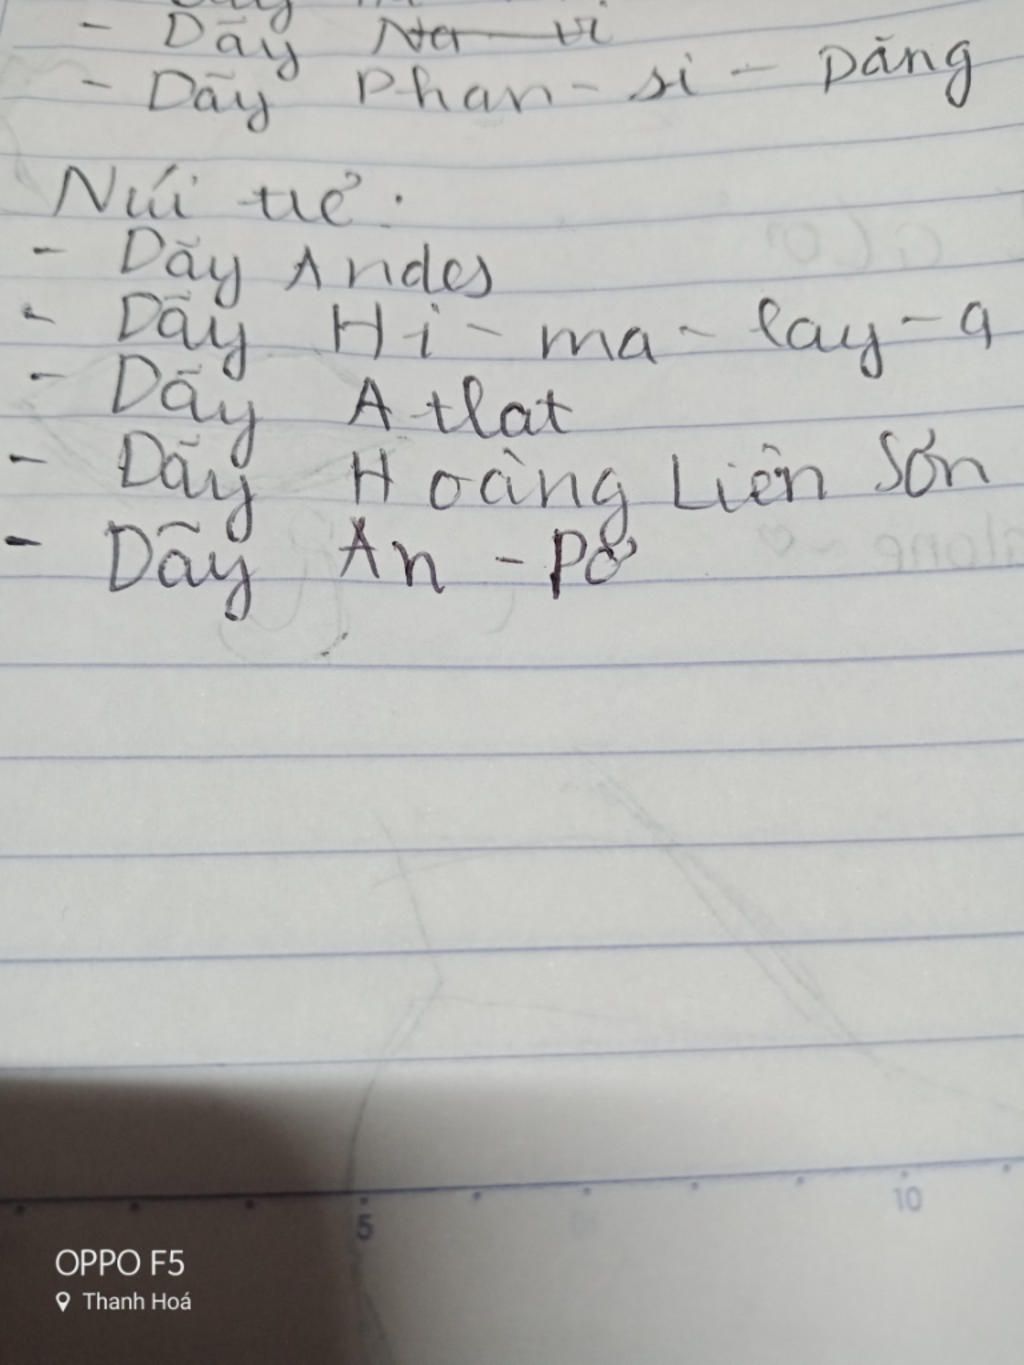 - Dãy Na-vi
- Dãy Phan-si-Păng
Núi trẻ.
- Dãy Andes
- Dãy Hi-ma-lay-a
- Dãy Atlat
- Dãy Hoàng Liên Sơn
- Dãy An-Pơ
5
10
OPPO F5
Thanh Hoá